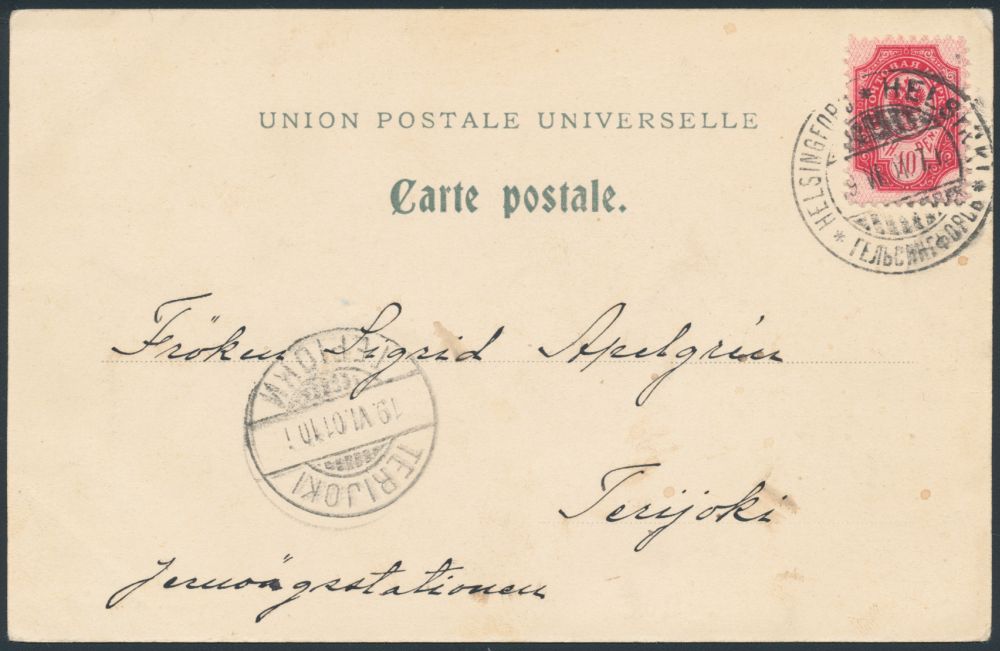 UNION POSTALE UNIVERSELLE
Carte postale.
HELSINGFORS * HELSINKI * ГЕЛЬСИНГФОРСЪ *
10 PEN
Fröken Sigrid Apelgrén
TERIJOKI
19.VI.01.10
Terijoki
Jernvägsstationen